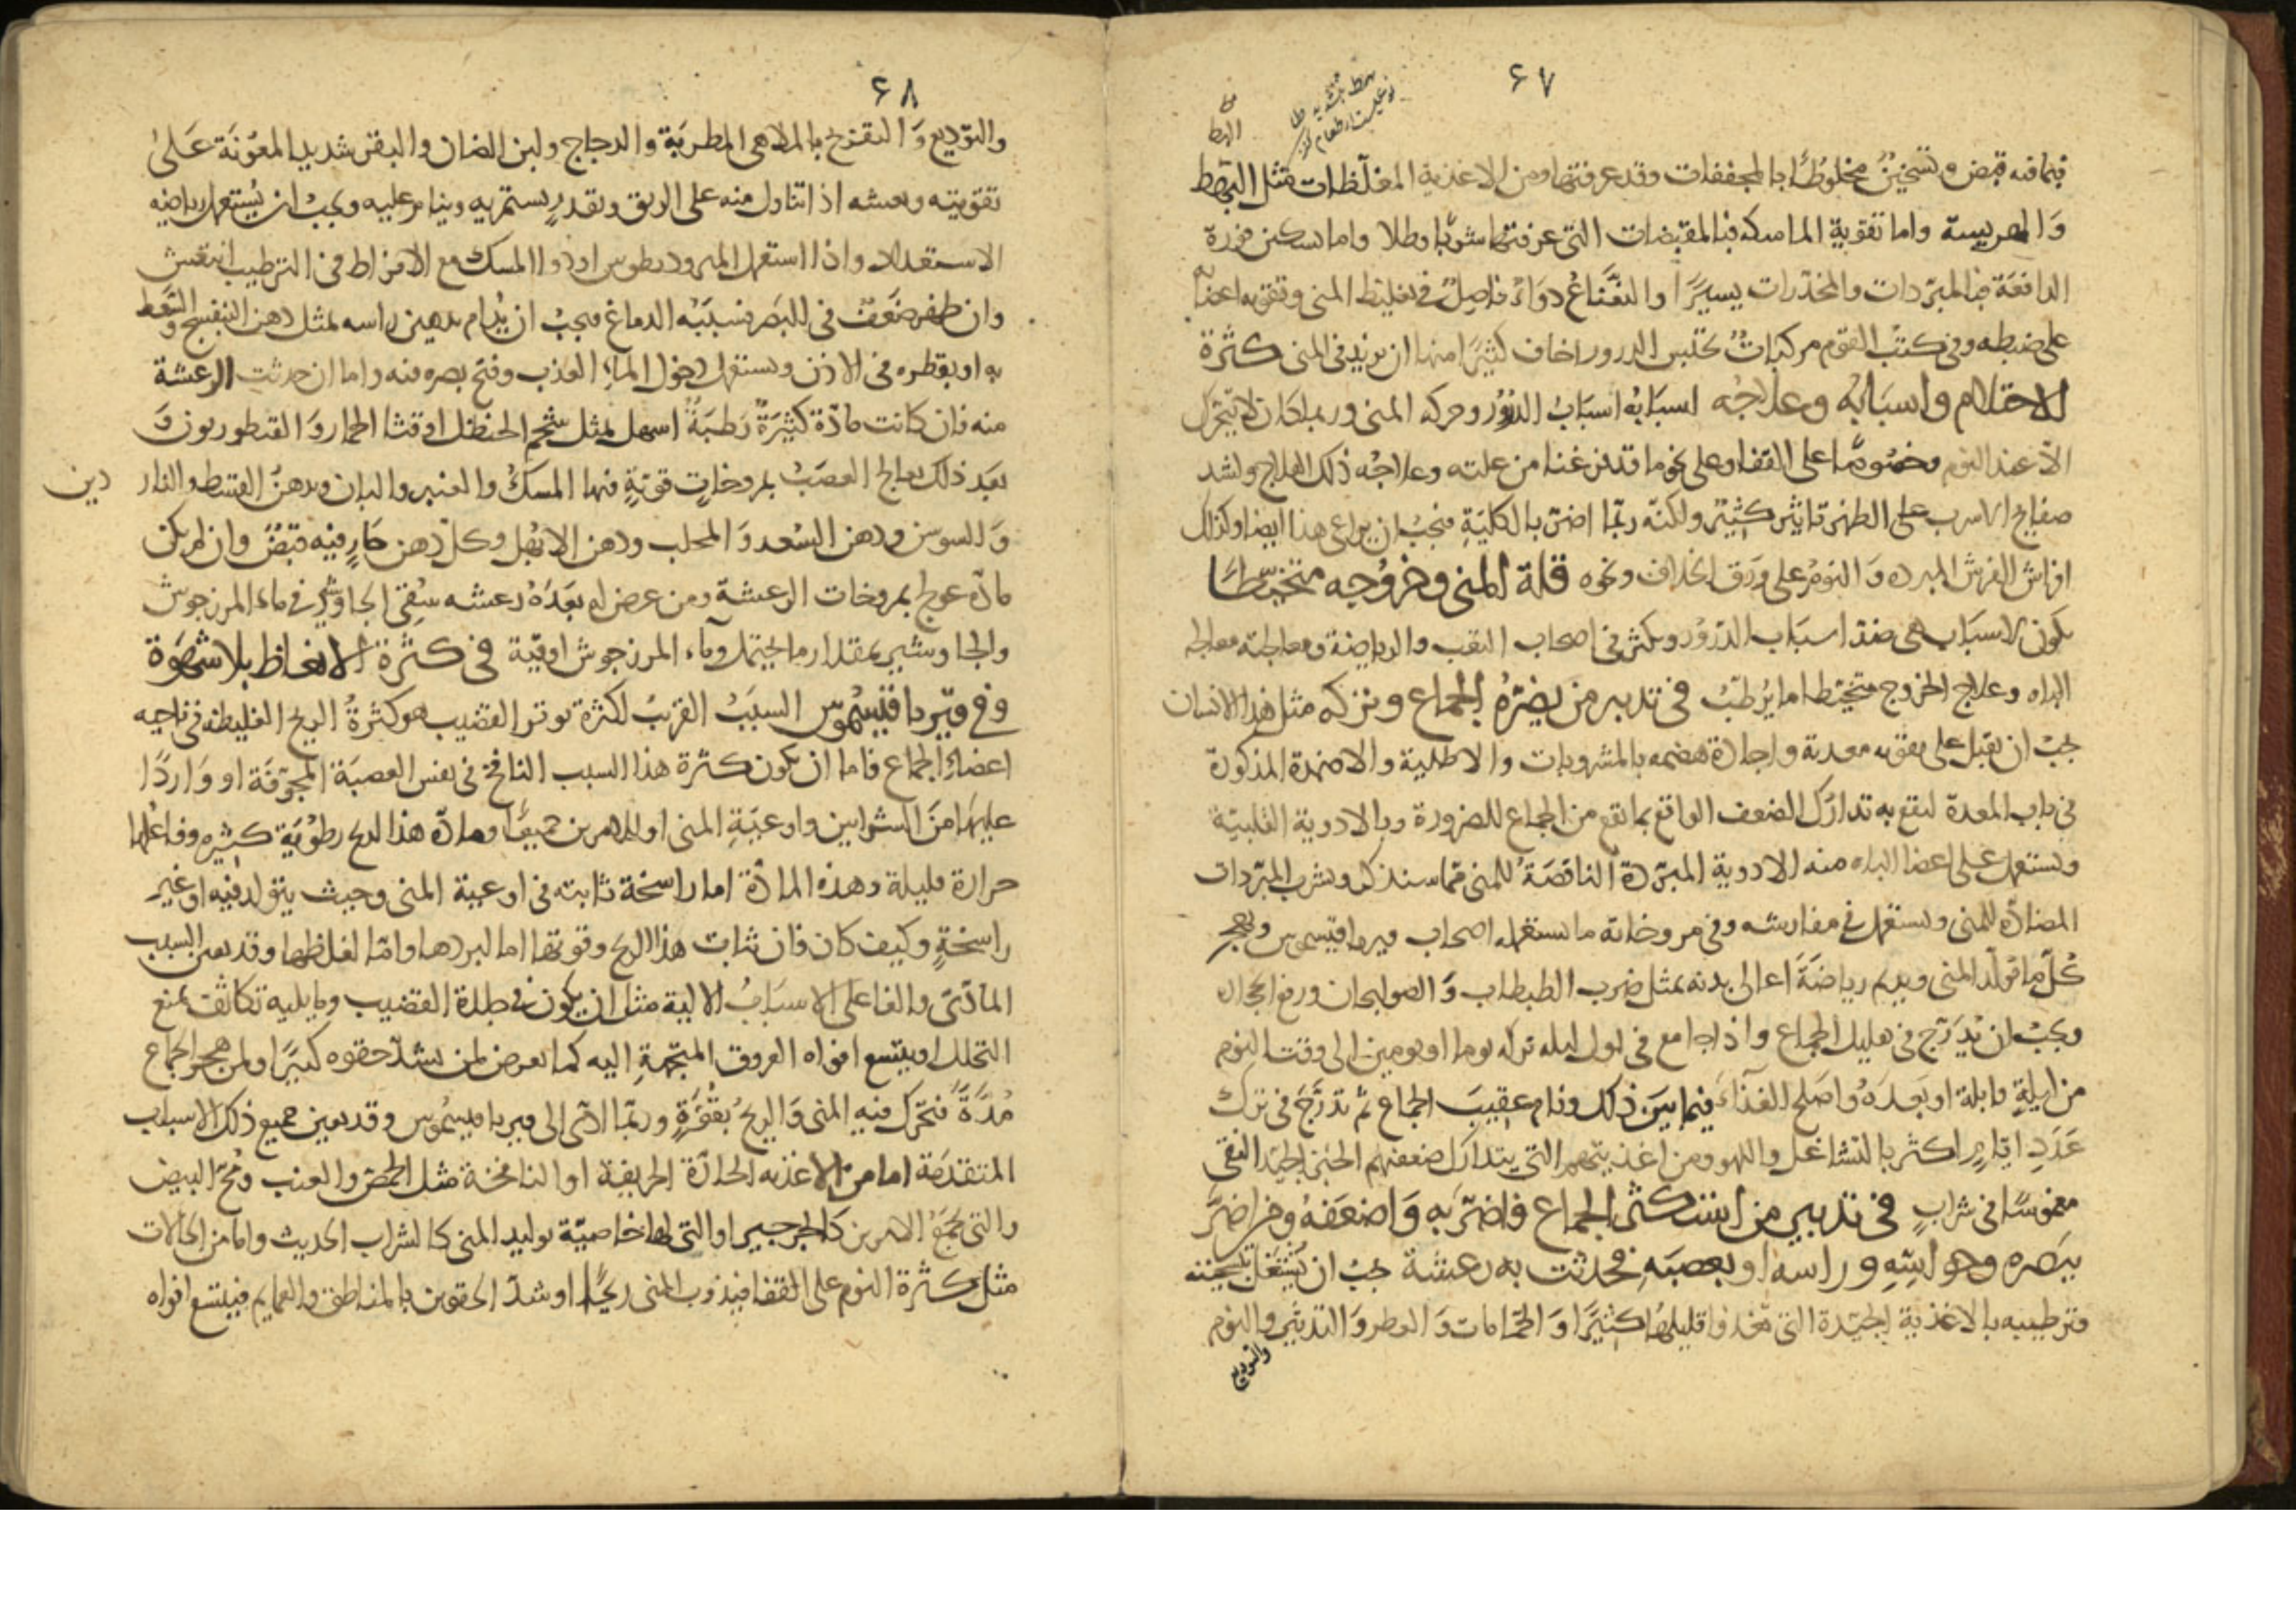 ٤٧
فيما فيه قبض وتسخين مخلوطا بالمجففات وقد عرفتها ومن الاغذية المغلظات مثل البهط
والهريسة واما تقوية الماسكه فبالمقبضات التي عرفتها شربا وطلا واما تسكين قوة
الدافعة فبالمبردات والمخدرات يسيرا والنعناع دواء فاضل في تغليظ المنى وتقويه اعضا
على ضبطه وفي كتب القوم مركبات تحتبس الدرور اخاف كثيرا منها ان يزيد في المنى كثرة
الاحتلام واسبابه وعلاجه اسبابه اسباب الدرور وحركه المنى وربما كان لا يتحرك
الا عند النوم وخصوصا على القفا وعلى نحو ما قد فرغنا من علته وعلاجه ذلك العلاج ولشد
صفايح الاسرب على الظهر تاثير كثير ولكنه ربما اضر بالكلية فيجب ان يراعى هذا ايضا وكذلك
افراش الفرش المبرده والنوم على ورق الخلاف ونحوه قلة المنى وخروجه متخيطا
يكون لاسباب هي ضد اسباب الدرور ويكثر في اصحاب التعب والرياضة ومعالجته معالجه
الباه وعلاج الخروج متخيطا ما يرطب في تدبير من يضره الجماع وتركه مثل هذا الانسان
يجب ان يقبل على تقويه معدته واجادة هضمه بالمشروبات والاطلية والاضمدة المذكورة
في باب المعدة ليقع به تدارك الضعف الواقع بما يقع من الجماع للضرورة وبالادوية القلبية
ويستعمل على اعضا الباه منه الادوية المبردة الناقصة للمنى مما سنذكره ويشرب المبردات
المضادة للمنى ويستعمل في مفارشه وفي مروخاته ما يستعمله اصحاب فيريافيسموس ويهجر
كل ما تولد المنى ويديم رياضة اعالي بدنه بمثل ضرب الطبطاب والصولجان ورفع الحجارة
ويجب ان يدرج في تقليل الجماع واذا جامع في اول ليله تركه يوما او يومين الى وقت النوم
من ليلة قابلة او بعده واصلح الغذاء فيما بين ذلك ونام عقيب الجماع ثم تدرج في ترك
عدد ايام اكثر بالتشاغل واللهو ومن اغذيتهم التي يتدارك ضعفهم الخبز الجيد النقي
مغموسا في شراب في تدبير من استكثر الجماع فاضر به واضعفه ومن اضر
ببصره وحواسه وراسه او بعصبه فحدثت به رعشة يجب ان يشتغل بتسخينه
وترطيبه بالاغذية الجيدة التي تغذوا قليلها كثيرا والحمامات والعطر والتدثير والنوم
والتوديع
٤٨
والتوديع والتفريح بالملاهي المطربة والدجاج ولبن الضان والبقر شديد المعونة على
تقويته ونعشه اذا تناول منه على الريق وبقدر يستمريه وينام عليه ويجب ان يستعمل رياضه
الاستعداد واذا استعمل المبرود بطوس او دوا المسك مع الافراط في الترطيب انتعش
وان ظهر ضعف في البصر فسببه الدماغ فيجب ان يدام تدهين راسه بمثل دهن البنفسج والتسعط
به او يقطره في الاذن ويستعمل دخول الماء العذب وفتح بصره فيه واما ان حدثت الرعشة
منه فان كانت مادة كثيرة رطبة اسهل بمثل شحم الحنظل او قثا الحمار والقنطوريون و
بعد ذلك يعالج العصب بمروخات قوية فيها المسك والعنبر والبان وبدهن القسط والنار دين
والسوسن ودهن السعد والمحلب ودهن الابهل وكل دهن حار فيه قبض وان لم يكن
مادة عولج بمروخات الرعشة ومن عرض له بعده رعشه سقي الجاوشير في ماء المرزجوش
والجاوشير بمقدار ما يحتمل وماء المرزجوش اوقية في كثرة الانعاظ بلا شهوة
وفي فيريافيسموس السبب القريب لكثرة توتر القضيب هو كثرة الريح الغليظه في ناحيه
اعضاء الجماع فاما ان يكون كثرة هذا السبب النافخ في نفس العصبة المجوفة او واردا
عليها من الشرايين واوعية المنى او للامرين جميعا ومادة هذا الريح رطوبة كثيره وفاعلها
حرارة قليلة وهذه المادة اما راسخة ثابته في اوعية المنى وحيث يتولد فيه او غير
راسخة وكيف كان فان ثبات هذا الريح وقوتها اما لبردها واما لغلظها وقد يعين السبب
المادي والفاعلي الاسباب الالية مثل ان يكون في جلدة القضيب وما يليه تكاثف يمنع
التحلل او يتسع افواه العروق المتجهة اليه كما يعرض لمن يشد حقوه كثيرا ولمن هجر الجماع
مدة فتحرك فيه المنى والريح بقفزة وربما ادى الى فيريافيسموس وقد يعين جميع ذلك الاسباب
المتقدمة اما من الاغذيه الحادة الحريفة او النافخة مثل الحمص والعنب ومخ البيض
والتي تجمع الامرين كالجرجير او التي لها خاصية توليد المنى كالشراب الحديث واما من الحالات
مثل كثرة النوم على القفا فيذوب المنى ريحا او شد الحقوين بالمناطق والعمايم فيتسع افواه